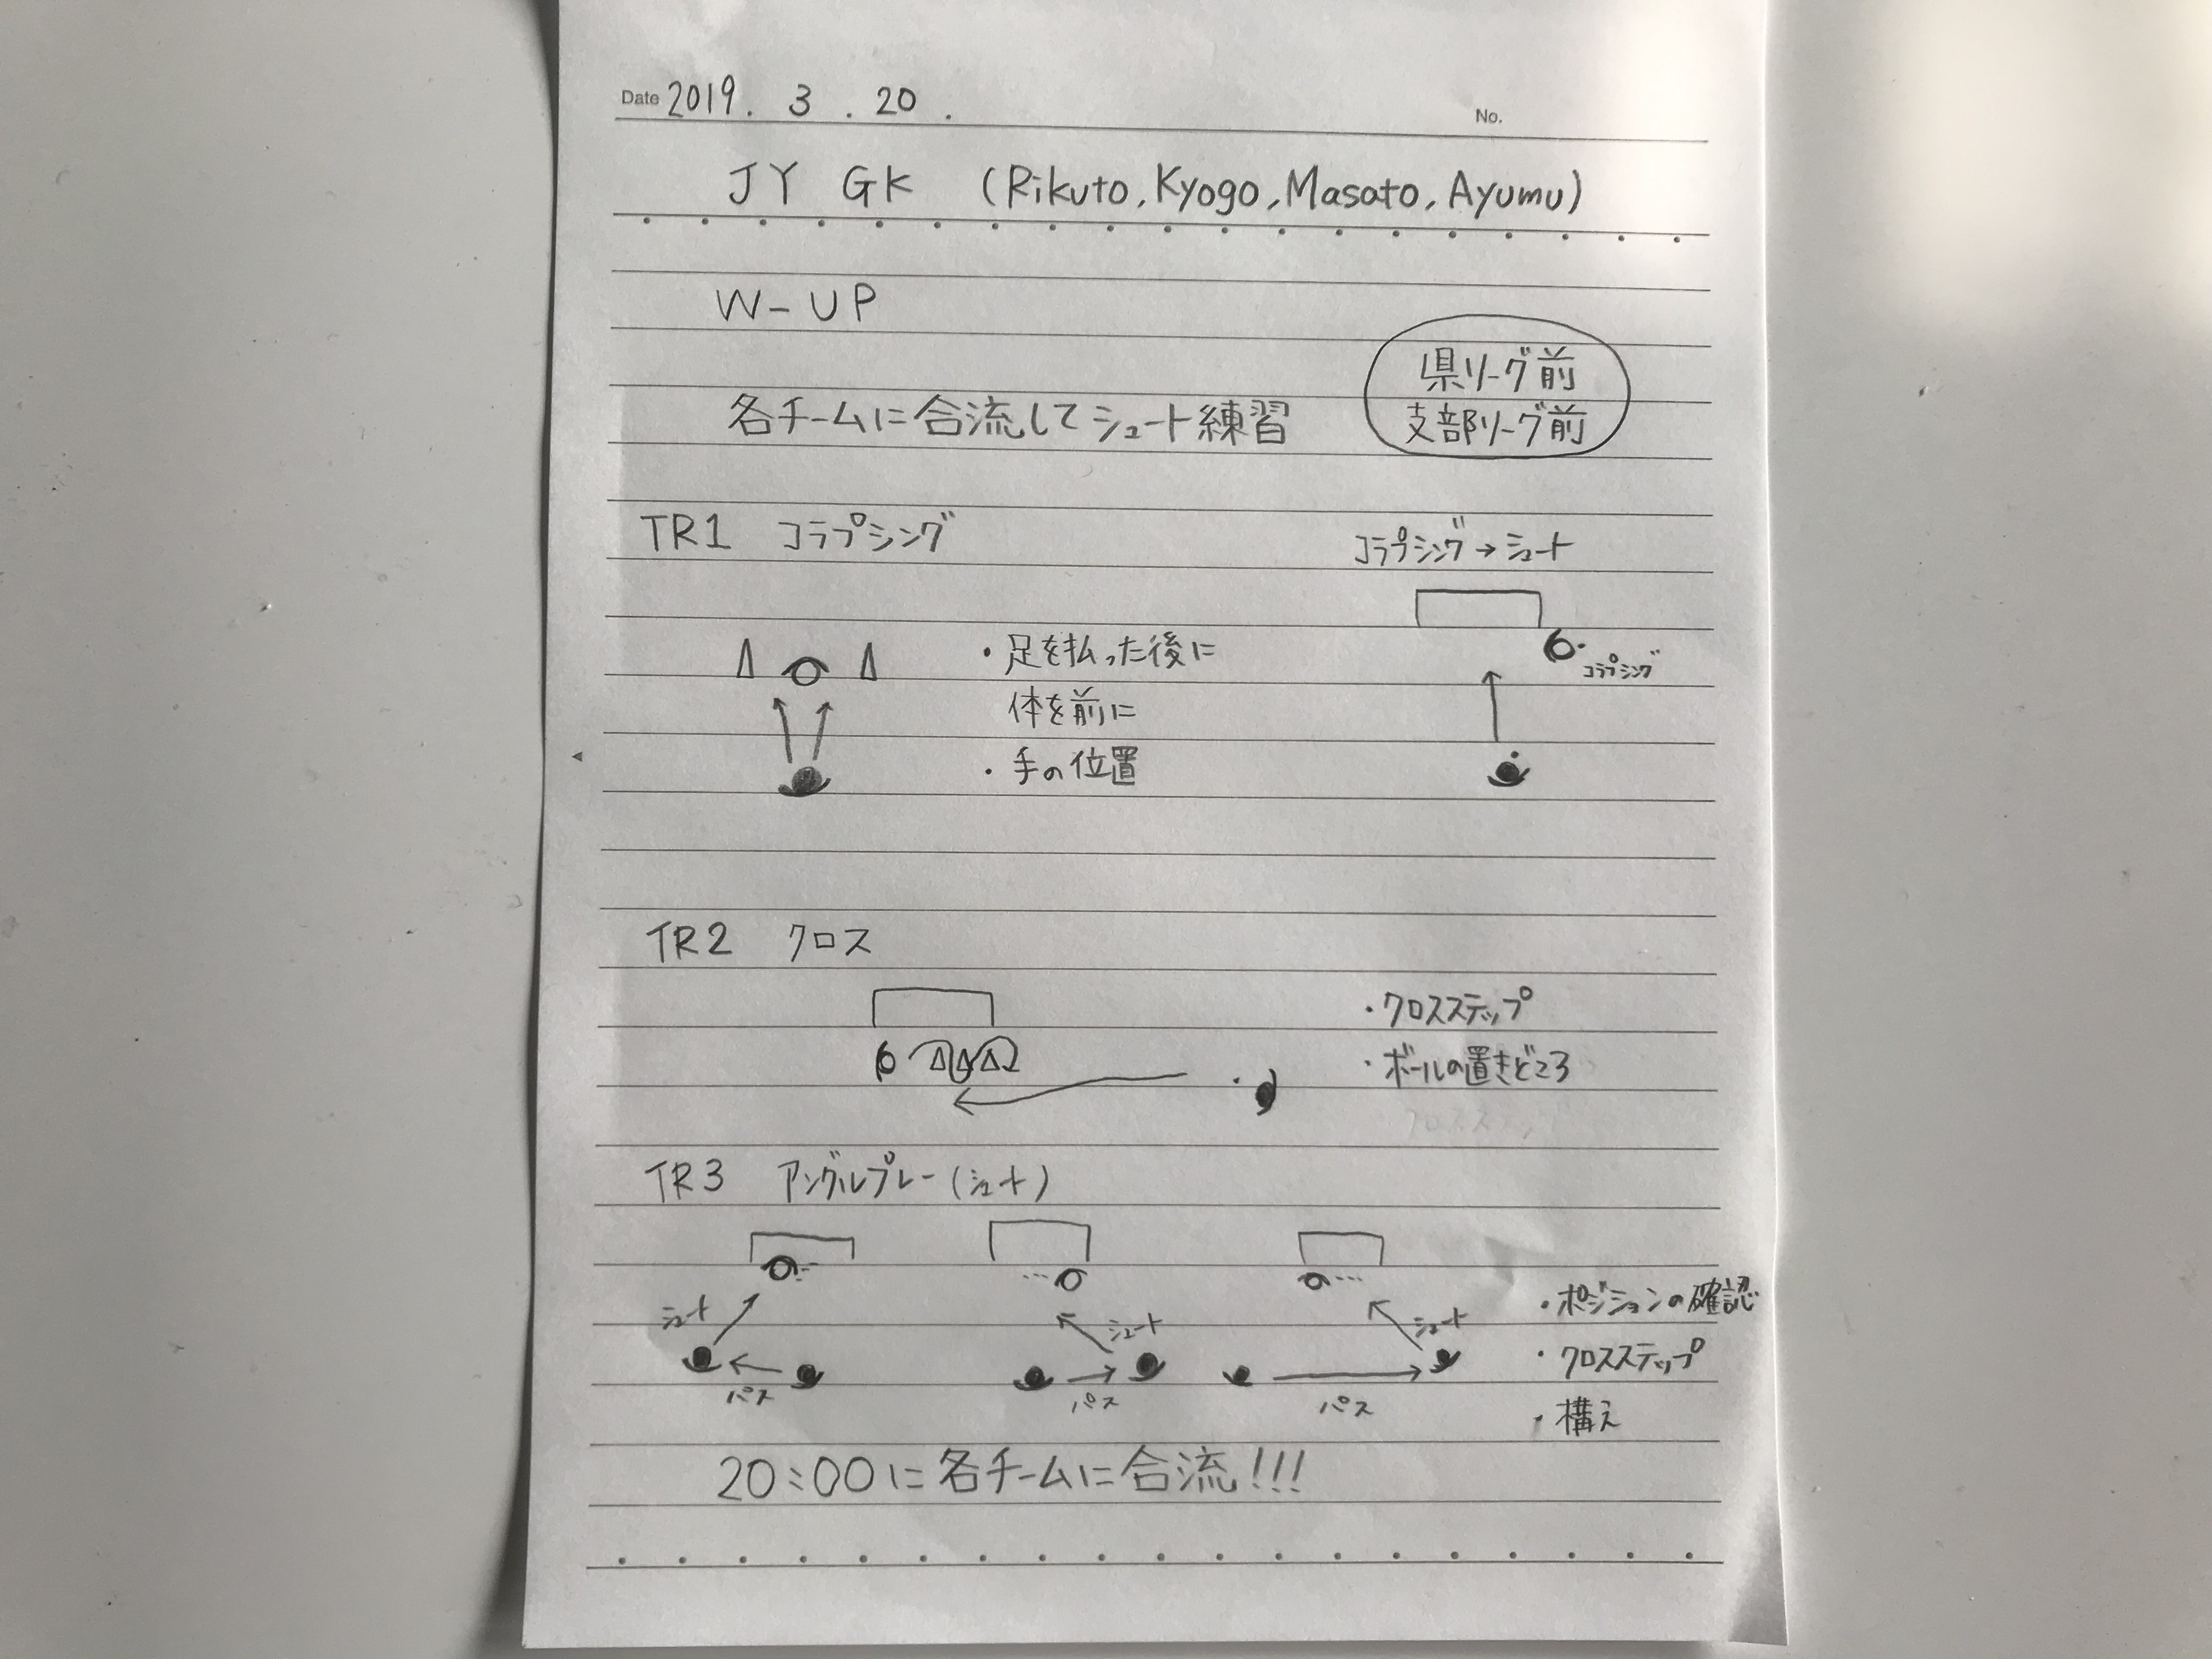 Date 2019. 3. 20.
No.
JY GK (Rikuto, Kyogo, Masato, Ayumu)
W-UP
県リーグ前
支部リーグ前
各チームに合流してシュート練習
TR1 コラプシング
コラプシング→シュート
・足を払った後に
体を前に
・手の位置
コラプシング
TR2 クロス
・クロスステップ
・ボールの置きどころ
クロスステップ
TR3 アングルプレー(シュート)
シュート
パス
シュート
パス
シュート
パス
・ポジションの確認
・クロスステップ
・構え
20:00に各チームに合流!!!